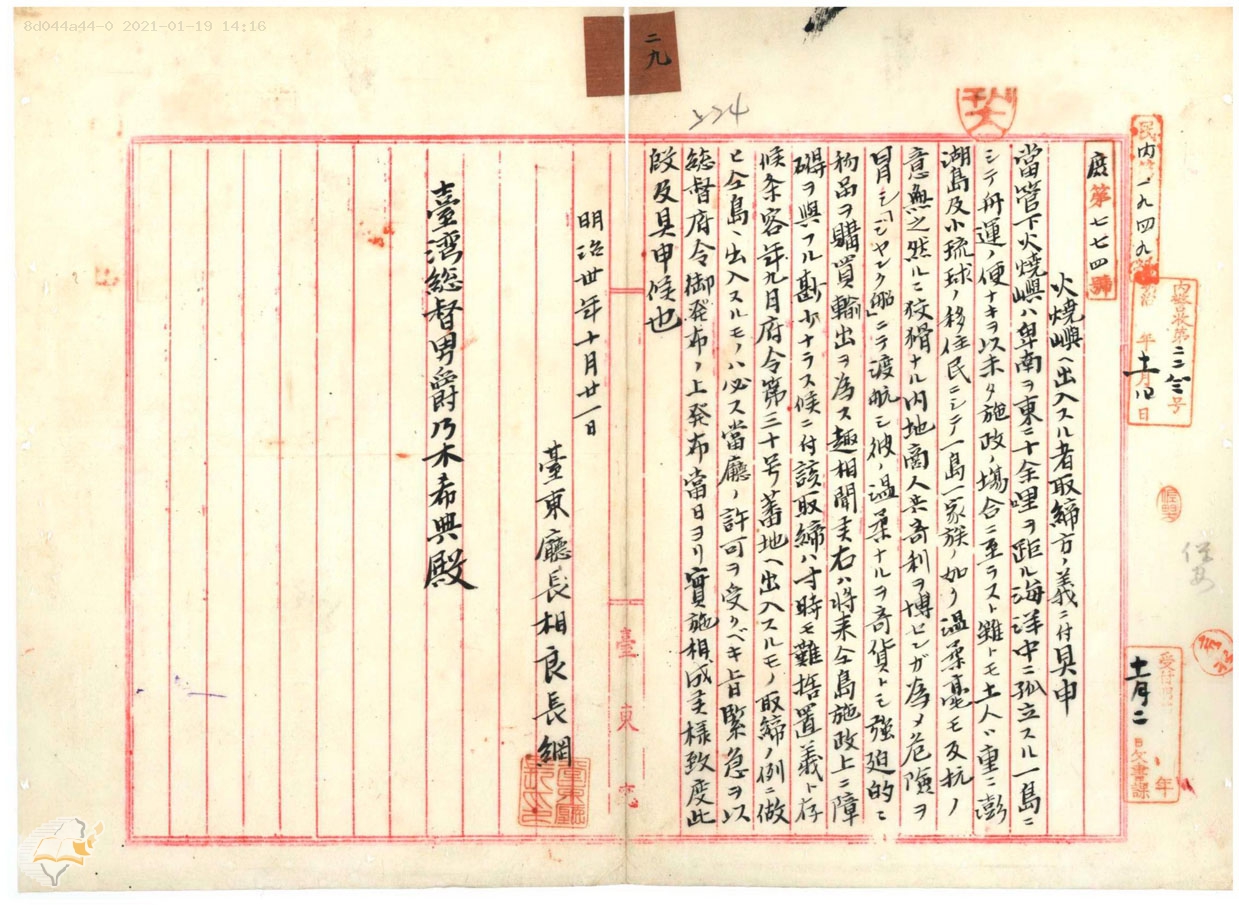 8d044a44-0 2021-01-19 14:16
二九
民内一九四九
庶第七七四號
火燒嶼ヘ出入スル者取締方ノ義ニ付具申
當管下火燒嶼ハ卑南ヲ東ニ十余哩ヲ距ル海洋中ニ孤立スル一島ニ
シテ舟運ノ便ナキヲ以未タ施政ノ場合ニ至ラスト雖トモ土人ハ重ニ澎
湖島及小琉球ノ移住民ニシテ一島一家族ノ如ク温柔毫モ反抗ノ
意無之然ルニ狡猾ナル内地商人共奇利ヲ博センガ為メ危険ヲ
冒シ「ジヤンク船」ニテ渡航シ彼ノ温柔ナルヲ奇貨トシ強迫的ニ
物品ヲ購買輸出ヲ為ス趣相聞実右ハ将来仝島施政上ニ障
碍ヲ與フル尠少ナラス候ニ付該取締ハ寸時モ難捨置義ト存
候条客年九月府令第三十号蕃地ヘ出入スルモノ取締ノ例ニ做
ヒ仝島ヘ出入スルモノハ必ス當廳ノ許可ヲ受クベキ旨緊急ヲ以
総督府令御発布ノ上発布當日ヨリ實施相成実様致度此
段及具申候也
明治卅年十月廿一日
臺東廳長相良長綱
臺湾総督男爵乃木希典殿
臺東
十一月二日文書課